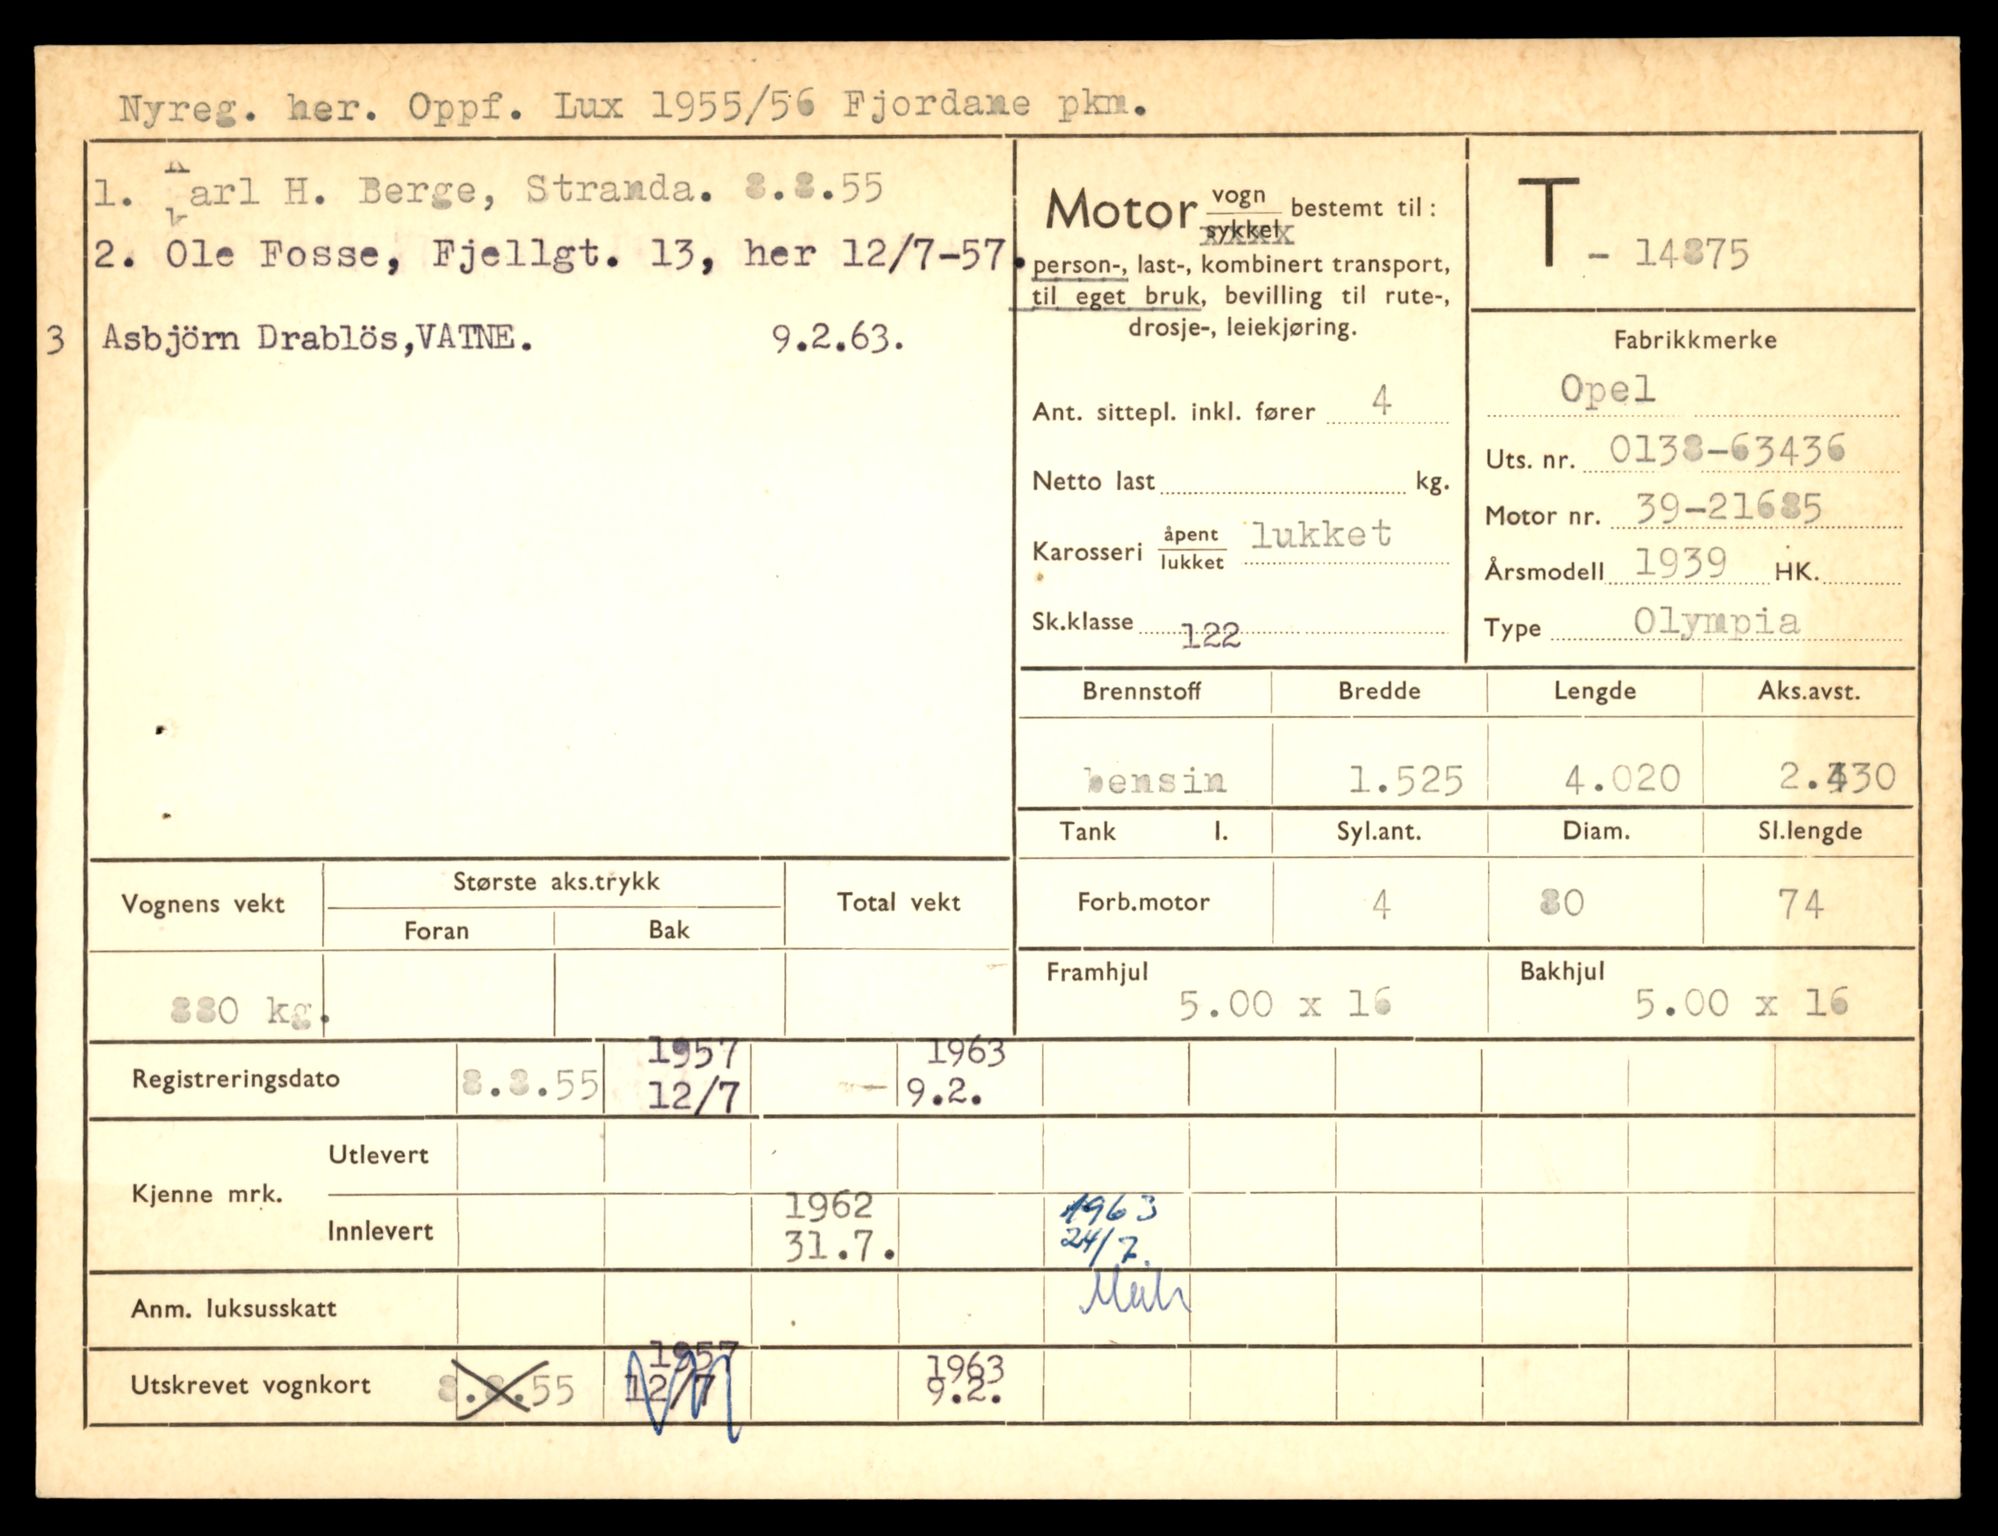 Nyreg. her. Oppf. Lux 1955/56 Fjordane pkm.
1. Karl H. Berge, Stranda. 8.8.55
2. Ole Fosse, Fjellgt. 13, her 12/7-57.
3 Asbjörn Drablös,VATNE. 9.2.63.
Motor vogn bestemt til:
sykkel xxxx
person-, last-, kombinert transport,
til eget bruk, bevilling til rute-,
drosje-, leiekjøring.
Ant. sittepl. inkl. fører 4
Netto last kg.
Karosseri åpent lukket
lukket
Sk.klasse 122
T - 14875
Fabrikkmerke
Opel
Uts. nr. 0138-63436
Motor nr. 39-21685
Årsmodell 1939 HK.
Type Olympia
Brennstoff Bredde Lengde Aks.avst.
bensin 1.525 4.020
Tank l. Syl.ant. Diam. Sl.lengde
Forb.motor 4 80 74
Framhjul Bakhjul
5.00 x 16 5.00 x 16
Vognens vekt Største aks.trykk Total vekt
Foran Bak
880 kg.
1957 1963
Registreringsdato 8.8.55 12/7 9.2.
Utlevert
Kjenne mrk.
1962 1963
Innlevert 31.7. 24/7
Anm. luksusskatt
1957 1963
Utskrevet vognkort 8.8.55 12/7 9.2.